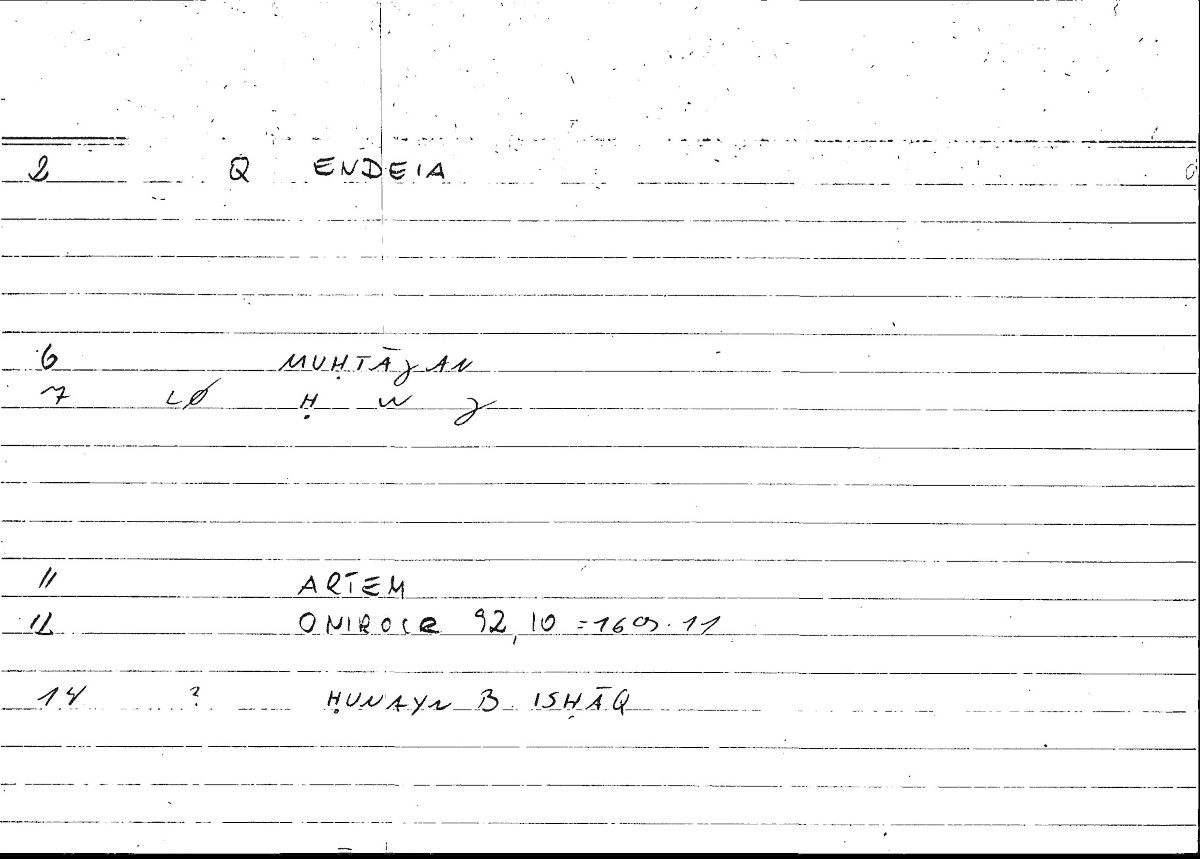 2 Q ENDEIA
6 MUḤTĀJAN
7 LØ Ḥ W J
11 ARTEM
12 ONIROCR 92,10 = 169.11
14 ? ḤUNAYN B. ISḤĀQ